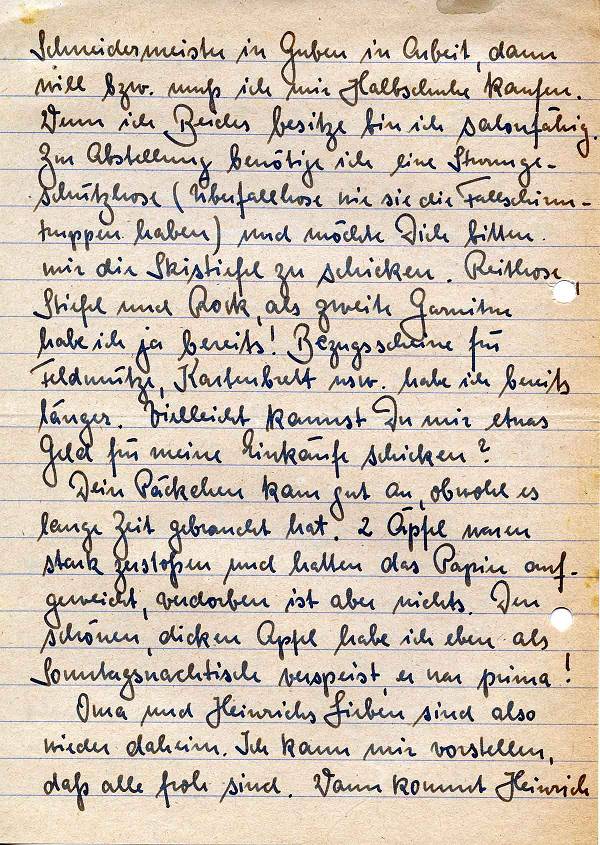 Schneidermeister in Guben in Arbeit, dann
will bzw. muß ich mir Halbschuhe kaufen.
Wenn ich Beides besitze bin ich salonfähig.
Zur Abstellung benötige ich eine Sturmge-
schützhose (Überfallhose wie sie die Fallschirm-
truppen haben) und möchte Dich bitten
mir die Skistiefel zu schicken. Reithose,
Stiefel und Rock, als zweite Garnitur
habe ich ja bereits! Bezugsscheine für
Feldmütze, Kartenbrett usw. habe ich bereits
länger. Vielleicht kannst Du mir etwas
Geld für meine Einkäufe schicken?
Dein Päckchen kam gut an, obwohl es
lange Zeit gebraucht hat. 2 Äpfel waren
stark zerstoßen und hatten das Papier auf-
geweicht, verdorben ist aber nichts. Den
schönen, dicken Apfel habe ich eben als
Sonntagsnachtisch verspeist, er war prima!
Oma und Heinrichs Lieben sind also
wieder daheim. Ich kann mir vorstellen,
daß alle froh sind. Wann kommt Heinrich